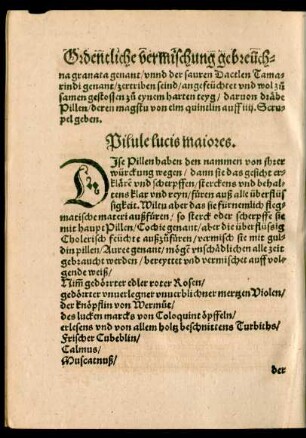 Ordentliche vermischung gebreuch-
na granata genant/vnnd der sauren Dactlen Tama-
rindi genant/zertriben seind/angefeüchtet vnd wol zů
samen gestossen zů eynem harten teyg/daruon dräße
Pillen/deren magstu von eim quintlin auff iiij. Scru-
pel geben.
Pilule lucis maiores.
DIse Pillen haben den nammen von jhrer
würckung wegen/dann sie das gesicht er-
kläre͂ vnd scherpffen/sterckens vnd behal-
tens klar vnd reyn/füren auß alle überflüs
sigkeit. Wiltu aber das sie fürnemlich fleg-
matische materi außfüren/so sterck oder scherpffe sie
mit haupt Pillen/Cochie genant/aber die überflüssig
Cholerisch feüchte außzůfüren/vermisch sie mit gul-
din pillen/Auree genant/möge͂ vnschädlichen alle zeit
gebraucht werden/bereyttet vnd vermischet auff vol-
gende weiß/
Nim̃ gedörrter edler roter Rosen/
gedörrter vnuerlegner vnuerblichner mertzen Violen/
der knöpflin von Wermůt/
des lucken marcks von Coloquint öpffeln/
erlesens vnd von allem holtz beschnittens Turbiths/
Frischer Cubeblin/
Calmus/
Muscatnuß/
der